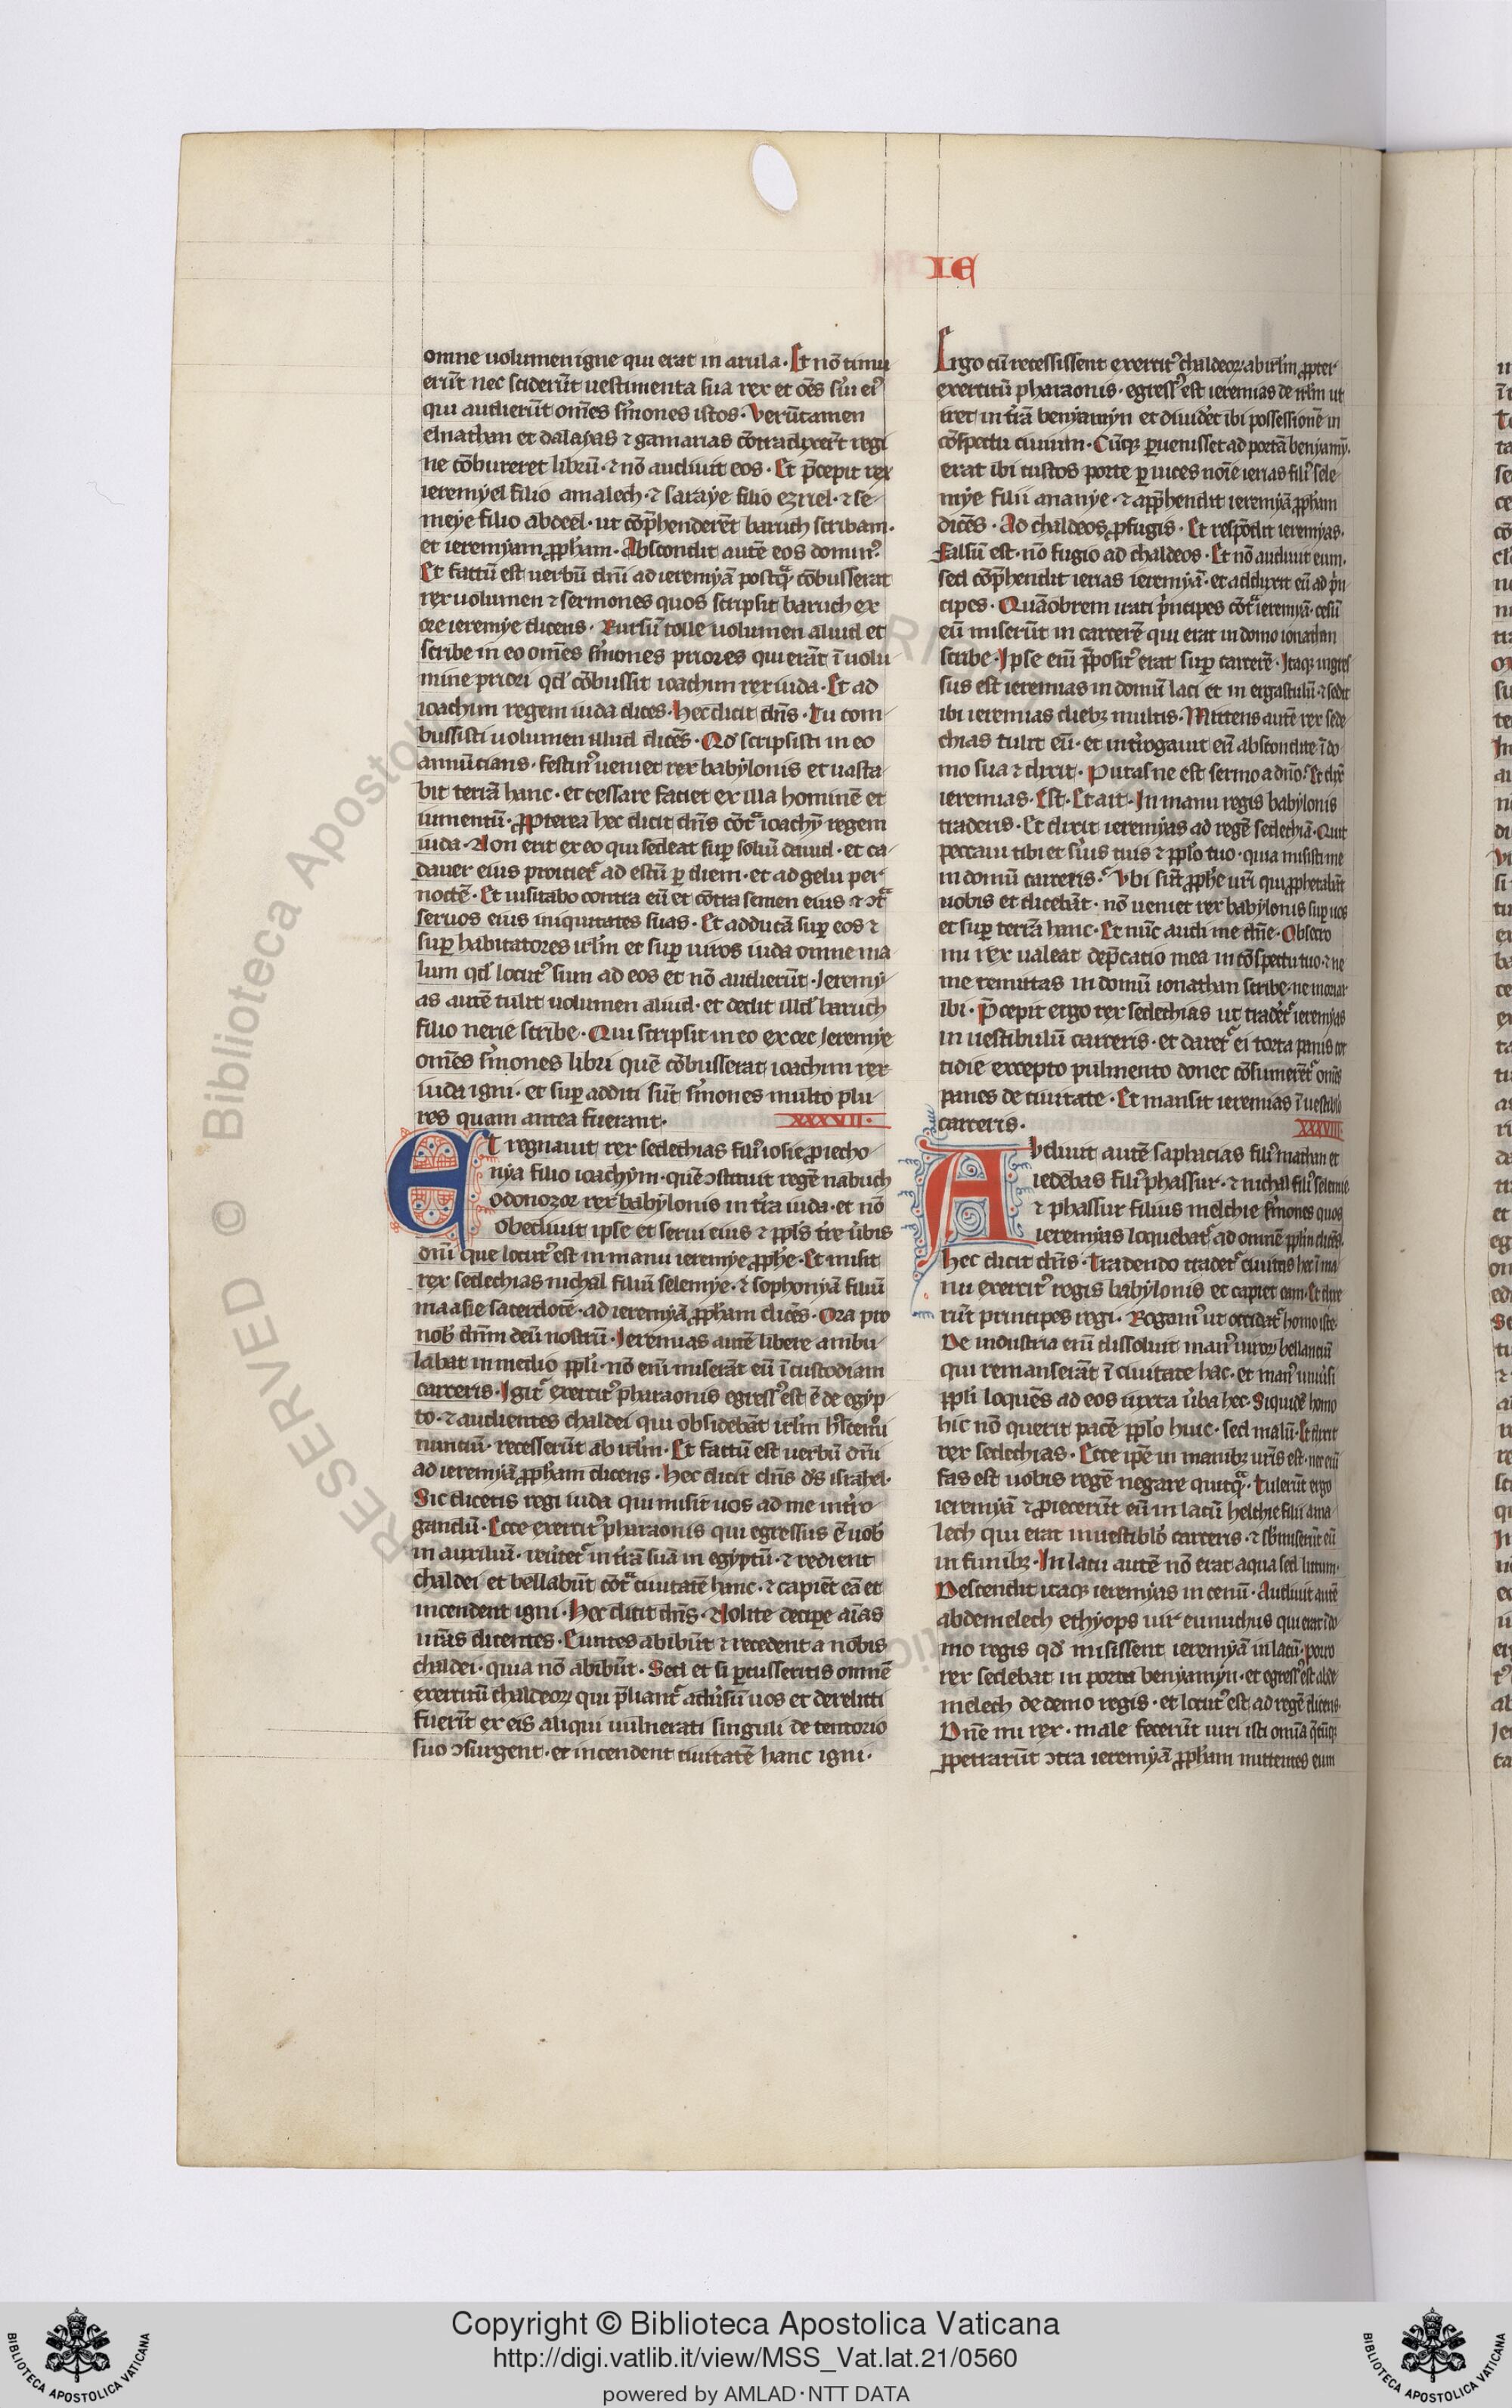 IE
omne uolumen igne qui erat in arula · Et nō timu
erūt nec sciderūt uestimenta sua rex et oēs sui eiꝰ
qui audierūt om̄es s̄mones istos · Verūtamen
elnathan et dalayas ⁊ gamarias cōtradixer̄t regi
ne cōbureret librū · ⁊ nō audiuit eos · Et p̄cepit rex
ieremyel filio amalech · ⁊ saraye filio ezriel · ⁊ se-
meye filio abdeel · ut cōp̄henderēt baruch scribam ·
et ieremyam ꝓph̄am · Abscondit autē eos dominꝰ
Et factū est uerbū dn̄i ad ieremyā postqᵃ cōbusserat
rex uolumen ⁊ sermones quos scripsit baruch ex
ore ieremye dicens · Rursū tolle uolumen aliud et
scribe in eo om̄es s̄mones priores qui erāt ī uolu
mine priori qd̓ cōbussit ioachim rex iuda · Et ad
ioachim regem iuda dices · Hec dicit dn̄s · Tu com-
bussisti uolumen illud dicēs · Qd̓ scripsisti in eo
annūcians · festinꝰ ueniet rex babylonis et uasta-
bit terrā hanc · et cessare faciet ex illa hominē et
iumentū · ꝓpterea hec dicit dn̄s cōtᵃ ioachȳ regem
iuda · Non erit ex eo qui sedeat suꝑ soliū dauid · et ca-
dauer eius proicietᷣ ad estū ꝑ diem · et ad gelu per
noctē · Et uisitabo contra eū et cōtra semen eius ⁊ ↄtᵃ
seruos eius iniquitates suas · Et adducā suꝑ eos ⁊
suꝑ habitatores irl̄m et suꝑ uiros iuda omne ma
lum qd̓ locutꝰ sum ad eos et nō audierūt · Ieremy-
as autē tulit uolumen aliud · et dedit illd̓ baruch
filio nerie scribe · Qui scripsit in eo ex ore Ieremye
om̄es s̄mones libri quē cōbusserat ioachim rex
iuda igni · et suꝑ additi sūt s̄mones multo plu-
res quam antea fuerant · XXXVII ·
Et regnauit rex sedechias filiꝰ iosie ꝓ iecho-
nya filio ioachym · quē ↄstituit regē nabuch
odonozor rex babylonis in tr̄a iuda · et nō
obediuit ipse et serui eius ⁊ ppl̄s tr̄e ūbis
dn̄i que locutꝰ est in manu ieremye ꝓph̄e · Et misit
rex sedechias iuchal filiū selemye · ⁊ sophonyā filiū
maasie sacerdotē · ad ieremyā ꝓph̄am dicēs · Ora pro
nob̓ dn̄m deū nostrū · Ieremias autē libere ambu-
labat in medio ppl̓i · nō enī miserāt eū ī custodiam
carceris · Igitᷣ exercitꝰ pharaonis egressꝰ est ē de egyp-
to · ⁊ audientes chaldei qui obsidebāt irl̄m
nunciū · recesserūt ab irl̄m · Et factū est uerbū dn̄i
ad ieremyā ꝓph̄am dicens · Hec dicit dn̄s d̓s israhel ·
Sic dicetis regi iuda qui misit uos ad me int̓ro-
gandū · Ecce exercitꝰ pharaonis qui egressus ē uob̓
in auxiliū · reu̓tetᷣ in tr̄ā suā in egyptū · ⁊ redient
chaldei et bellabūt cōtᵃ ciuitatē hanc · ⁊ capiēt eā et
incendent igni · Hec dicit dn̄s · Nolite deciꝑe aīas
ur̄as dicentes · Euntes abibūt ⁊ recedent a nobis
chaldei · quia nō abibūt · Sed et si ꝑcusseritis omnē
exercitū chaldeoꝝ qui p̄liantᷣ adu̓sū uos et derelicti
fuerīt ex eis aliqui uulnerati singuli de tentorio
suo ↄsurgent · et incendent ciuitatē hanc igni ·
Ergo cū recessissent exercitꝰ chaldeoꝝ ab irl̄m ꝓpter
exercitū pharaonis · egressꝰ est ieremias de irl̄m ut
iret in tr̄ā benyamyn et diuid̓et ibi possessionē in
cōspectu ciuium · Cūqꝫ ꝑuenisset ad portā beniamȳ ·
erat ibi custos porte ꝑ uices noīe ierias filiꝰ sele-
mye filii ananye · ⁊ app̄hendit ieremyā ꝓph̄am
dicēs · Ad chaldeos ꝓfugis · Et respōdit ieremyas ·
Falsū est · nō fugio ad chaldeos · Et nō audiuit eum ·
sed cōp̄hendit ierias ieremyā · et adduxit eū ad p̓n
cipes · Quāobrem irati p̓ncipes cōtᵃ ieremyā · cesū
eū miserūt in carcerē qui erat in domo ionathan
scribe · Ipse enī p̄positꝰ erat suꝑ carcerē · Itaqꝫ ingres
sus est ieremias in domū laci et in ergastulū · ⁊ sedit
ibi ieremias diebꝫ multis · Mittens autē rex sede-
chias tulit eū · et int̓rogauit eū abscondite ī do-
mo sua ⁊ dixit · Putasne est sermo a dn̄o · Et dix̄
ieremias · Est · Et ait · In manu regis babylonis
traderis · Et dixit ieremyas ad regē sedechiā · Quit
peccaui tibi et s̓uis tuis ⁊ ppl̓o tuo · quia misisti me
in domū carceris · Vbi sūt ꝓph̄e ur̄i qui ꝓphetabāt
uobis et dicebāt · nō ueniet rex babylonis suꝑ uos
et suꝑ terrā hanc · Et nūc audi me dn̄e · Obsecro
mi rex ualeat dep̄catio mea in cōspectu tuo · ⁊ ne
me remittas in domū ionathan scribe · ne moriar
ibi · P̄cepit ergo rex sedechias ut trad̓etᷣ ieremyas
in uestibulū carceris · et daretᷣ ei torta panis cot
tidie excepto pulmento donec cōsumerētᷣ om̄s
panes de ciuitate · Et mansit ieremias ī uestibulo
carceris · XXXVIII
Avdiuit autē saphacias filiꝰ mathan et
iedēbas filiꝰ phassur · ⁊ iuchal filiꝰ selemie
⁊ phassur filius melchie s̄mones quos
ieremyas loquebatᷣ ad omnē ppl̄m dicēs ·
Hec dicit dn̄s · Tradendo tradetᷣ ciuitas hec ī ma
nu exercitꝰ regis babylonis et capiet eam · Et dixe
rūt principes regi · Rogamꝰ ut occidatᷣ homo iste ·
De industria enī dissoluit manꝰ uiroꝝ bellanciū
qui remanserāt ī ciuitate hac · et manꝰ uniu̓si
ppl̓i loquēs ad eos iuxta u̓ba hec · Siquidē homo
hic nō querit pacē ppl̓o huic · sed malū · Et dixit
rex sedechias · Ecce ip̄e in manibꝫ ur̄is est · nec enī
fas est uobis regē negare quicqᵃ · Tulerūt ergo
ieremyā ⁊ ꝓiecerūt eū in lacū helchie filii ama-
lech qui erat in uestibl̓o carceris · ⁊ submiserūt eū
in funibꝫ · In lacu autē nō erat aqua sed lutum ·
Descendit itaqꝫ ieremyas in cenū · Audiuit autē
abdemelech ethyops uir eunuchus qui erat ī do
mo regis qd̓ misissent ieremyā in lacū · porro
rex sedebat in porta benyamyn · et egressꝰ est abde
melech de domo regis · et locutꝰ est ad regē dicens ·
Dn̄e mi rex · male fecerūt uiri isti omīa q̄cūqꝫ
ꝑpetrarūt ↄtra ieremyā ꝓph̄am mittentes eum
RESERVED © Biblioteca Apostolica
Copyright © Biblioteca Apostolica Vaticana
http://digi.vatlib.it/view/MSS_Vat.lat.21/0560
powered by AMLAD·NTT DATA
BIBLIOTECA APOSTOLICA VATICANA
BIBLIOTECA APOSTOLICA VATICANA